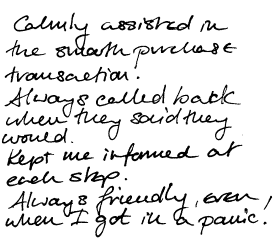 Calmly assisted in
the smooth purchase
transaction.
Always called back
when they said they
would.
Kept me informed at
each step.
Always friendly, even,
when I got in a panic.